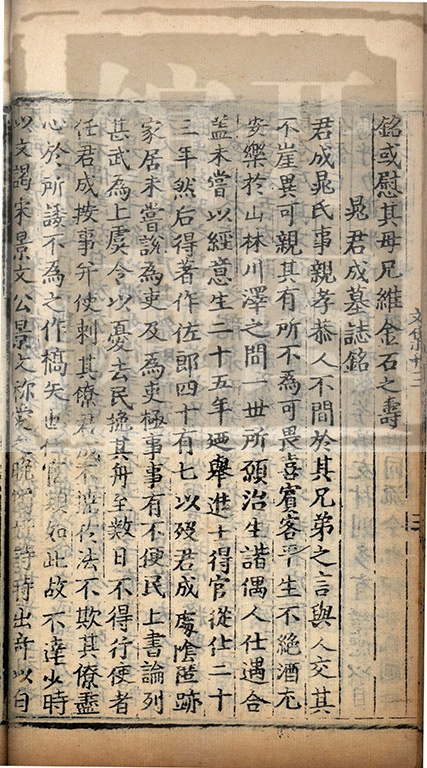 銘或慰其母兄維金石之壽
晁君成墓誌銘
君成晁氏事親孝恭人不間於其兄弟之言與人交其
不崖異可親其有所不為可畏喜賓客平生不絶酒尤
安樂於山林川澤之間一世所願治生諧偶人仕遇合
蓋未嘗以經意生二十五年廼舉進士得官從仕二十
三年然后得著作佐郎四十有七以殁君成處陰跡
家居未嘗說為吏及為吏極事事有不便民上書論列
甚武為上虞令以憂去民挽其舟至數日不得行使者
任君成按事并使刺其僚君於法不欺其僚盡
心於所諉不為之作槁矢也類如此故不達少時
以文謁宋景文公景文稱愛晚獨詩時出奇以自
文集
三